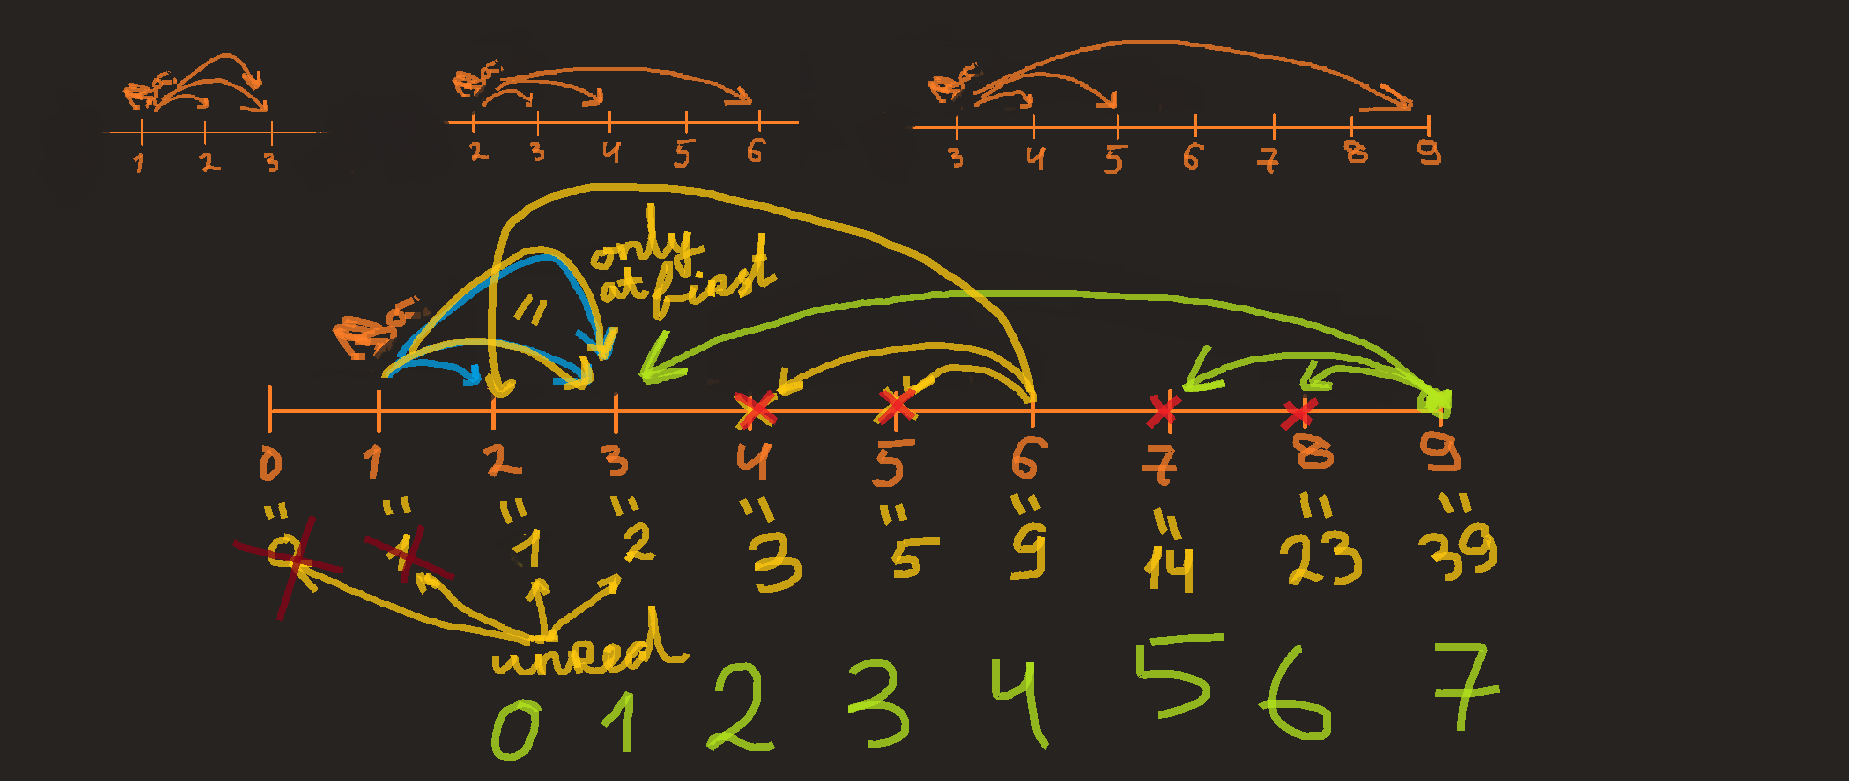 1 2 3
2 3 4 5 6
3 4 5 6 7 8 9
only
at first
"
0 1 2 3 4 5 6 7 8 9
" " " " " " " " " "
0 1 1 2 3 5 9 14 23 39
unreed
0 1 2 3 4 5 6 7